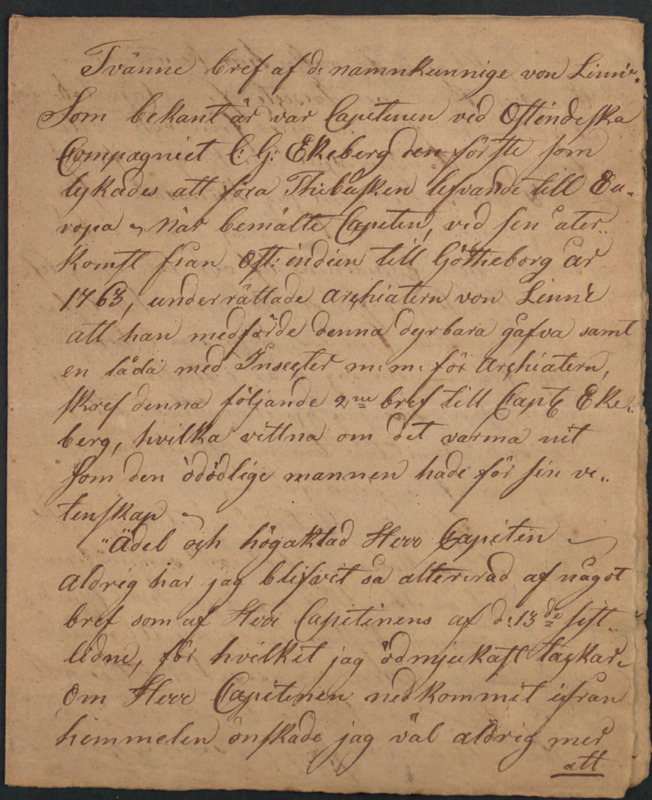 Tvänne bref af d: namnkunnige von Linnée.
Som bekant är var Capitenen vid Ostindiska
Compagniet C: G: Ekeberg den förste som
lykades att föra Thebusken lefvande till Eu-
ropa ~ När bemälte Capiten, vid sen åter-
komst från Ost: indien till Götheborg år
1763, underrättade Archiatern von Linnée
att han medförde denna dyrbara gåfva samt
en låda med Insecter m: m: för Archiatern,
skref denna följande 2ne bref till Capt: Eke-
berg, hvilka vittna om det varma nit
som den odödlige mannen hade för sin ve-
tenskap ~
"Ädel och högaktad Herr Capiten ~
aldrig har jag blifvit så altererad af något
bref som af Herr Capitenens af d: 13de sist-
lidne, för hvilket jag ödmjukast tackar.
Om Herr Capitenen nedkommit ifrån
himmelen önskade jag väl aldrig mer
att